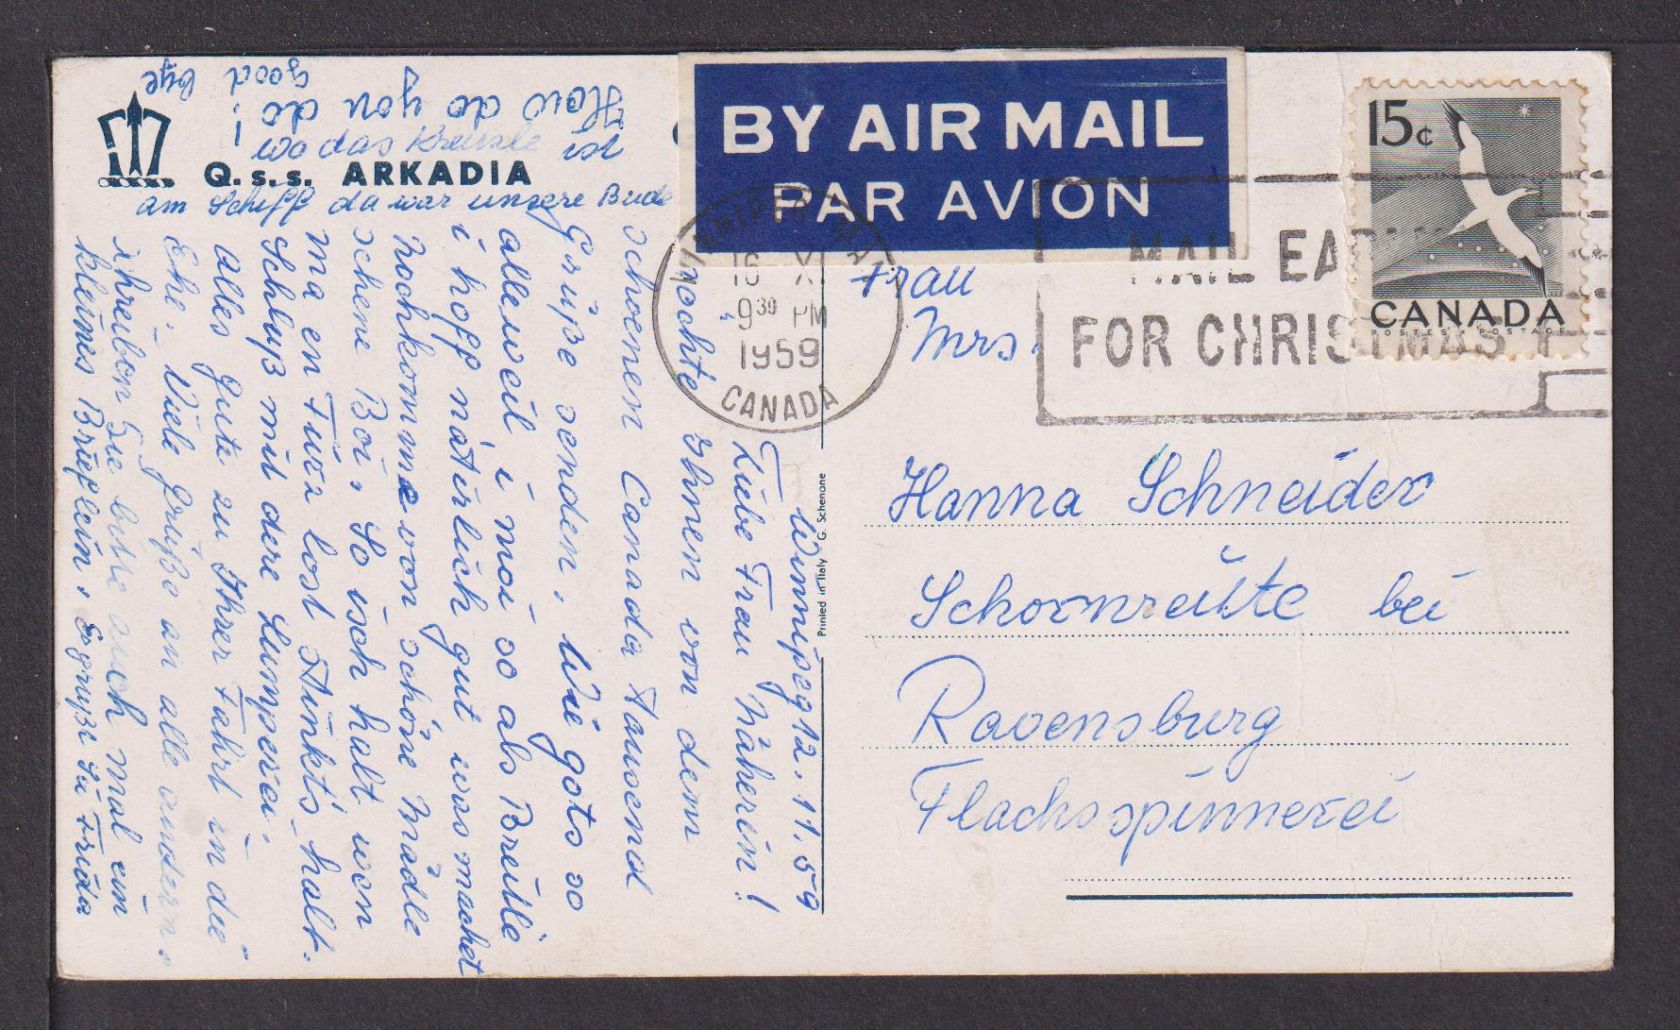 Q.s.s. ARKADIA
BY AIR MAIL
PAR AVION
15¢
CANADA
POSTES POSTAGE
WINNIPEG MAN
16 XI
9 30 PM
1959
CANADA
MAIL EA
FOR CHRISTMAS
Printed in Italy G. Schenone
Frau
Mrs.
Hanna Schneider
Schornreute bei
Ravensburg
Flachsspinnerei
Winnipeg 12. 11. 59
Liebe Frau Näherin!
möchte Ihnen von dem
schoenen Canada Tausend
Grüße senden. Wie gots so
alleweil i moi so als Breutle
i hoff natürlich gut was machet
Nochkomme von schöne Mädle
schene Boi. So isch halt wen
ma en Fürz lost stinkts halt.
Schluß mit dere Lumperei.
alles Gute zu Ihrer Fahrt in die
Ehe. Viele Grüße an alle andern.
schreiben Sie bitte auch mal ein
kleines Brieflein. Es grüßt Sie Frida
am Schiff da war unsere Bude
wo das Kreuzle ist
How do you do!
Good bye